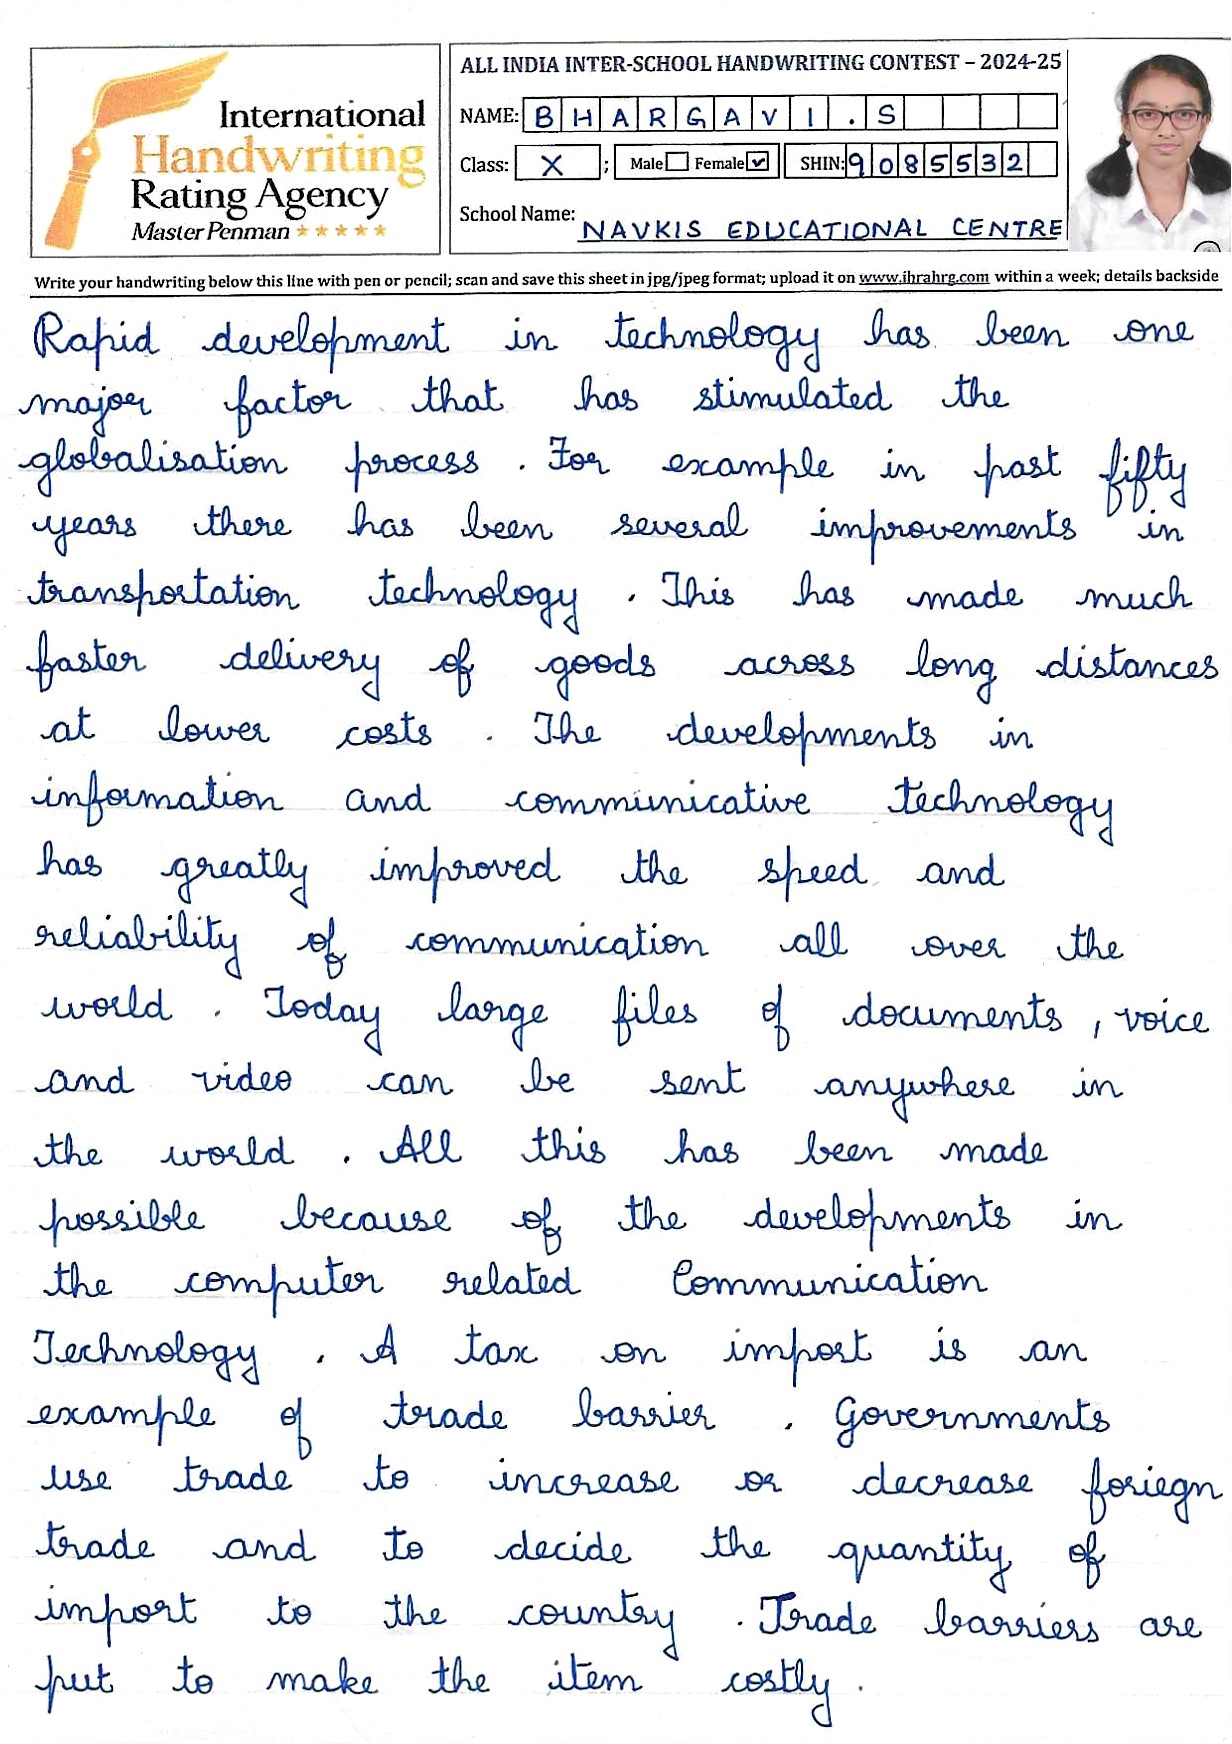 International
Handwriting
Rating Agency
Master Penman
ALL INDIA INTER-SCHOOL HANDWRITING CONTEST – 2024-25
NAME: BHARGAVI.S
Class: X ; Male Female ✓ SHIN: 9085532
School Name: NAVKIS EDUCATIONAL CENTRE
Write your handwriting below this line with pen or pencil; scan and save this sheet in jpg/jpeg format; upload it on www.ihrahrg.com within a week; details backside
Rapid development in technology has been one
major factor that has stimulated the
globalisation process . For example in past fifty
years there has been several improvements in
transportation technology . This has made much
faster delivery of goods across long distances
at lower costs . The developments in
information and communicative technology
has greatly improved the speed and
reliability of communication all over the
world . Today large files of documents , voice
and video can be sent anywhere in
the world . All this has been made
possible because of the developments in
the computer related Communication
Technology . A tax on import is an
example of trade barrier . Governments
use trade to increase or decrease foriegn
trade and to decide the quantity of
import to the country . Trade barriers are
put to make the item costly .